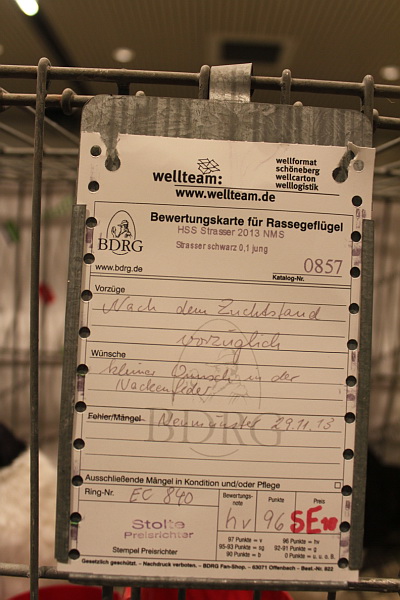 wellteam:
wellformat
schöneberg
wellcarton
welllogistik
www.wellteam.de
Bewertungskarte für Rassegeflügel
HSS Strasser 2013 NMS
Strasser schwarz 0,1 jung
BDRG
www.bdrg.de
Katalog-Nr. 0857
Vorzüge
Nach dem Zuchtstand
vorzüglich
Wünsche
kleiner Wunsch in der
Nackenfeder
Fehler/Mängel Neumünster 29.11.13
BDRG
Ausschließende Mängel in Kondition und/oder Pflege
Ring-Nr. EC 840
Bewertungs-
note
Punkte
Preis
hv 96 SE
Stolte
Preisrichter
Stempel Preisrichter
97 Punkte = v
96 Punkte = hv
95-93 Punkte = sg
92-91 Punkte = g
90 Punkte = b
0 Punkte = u, o. u. B.
Gesetzlich geschützt. – Nachdruck verboten. – BDRG Fan-Shop. – 63071 Offenbach – Best.-Nr. 823